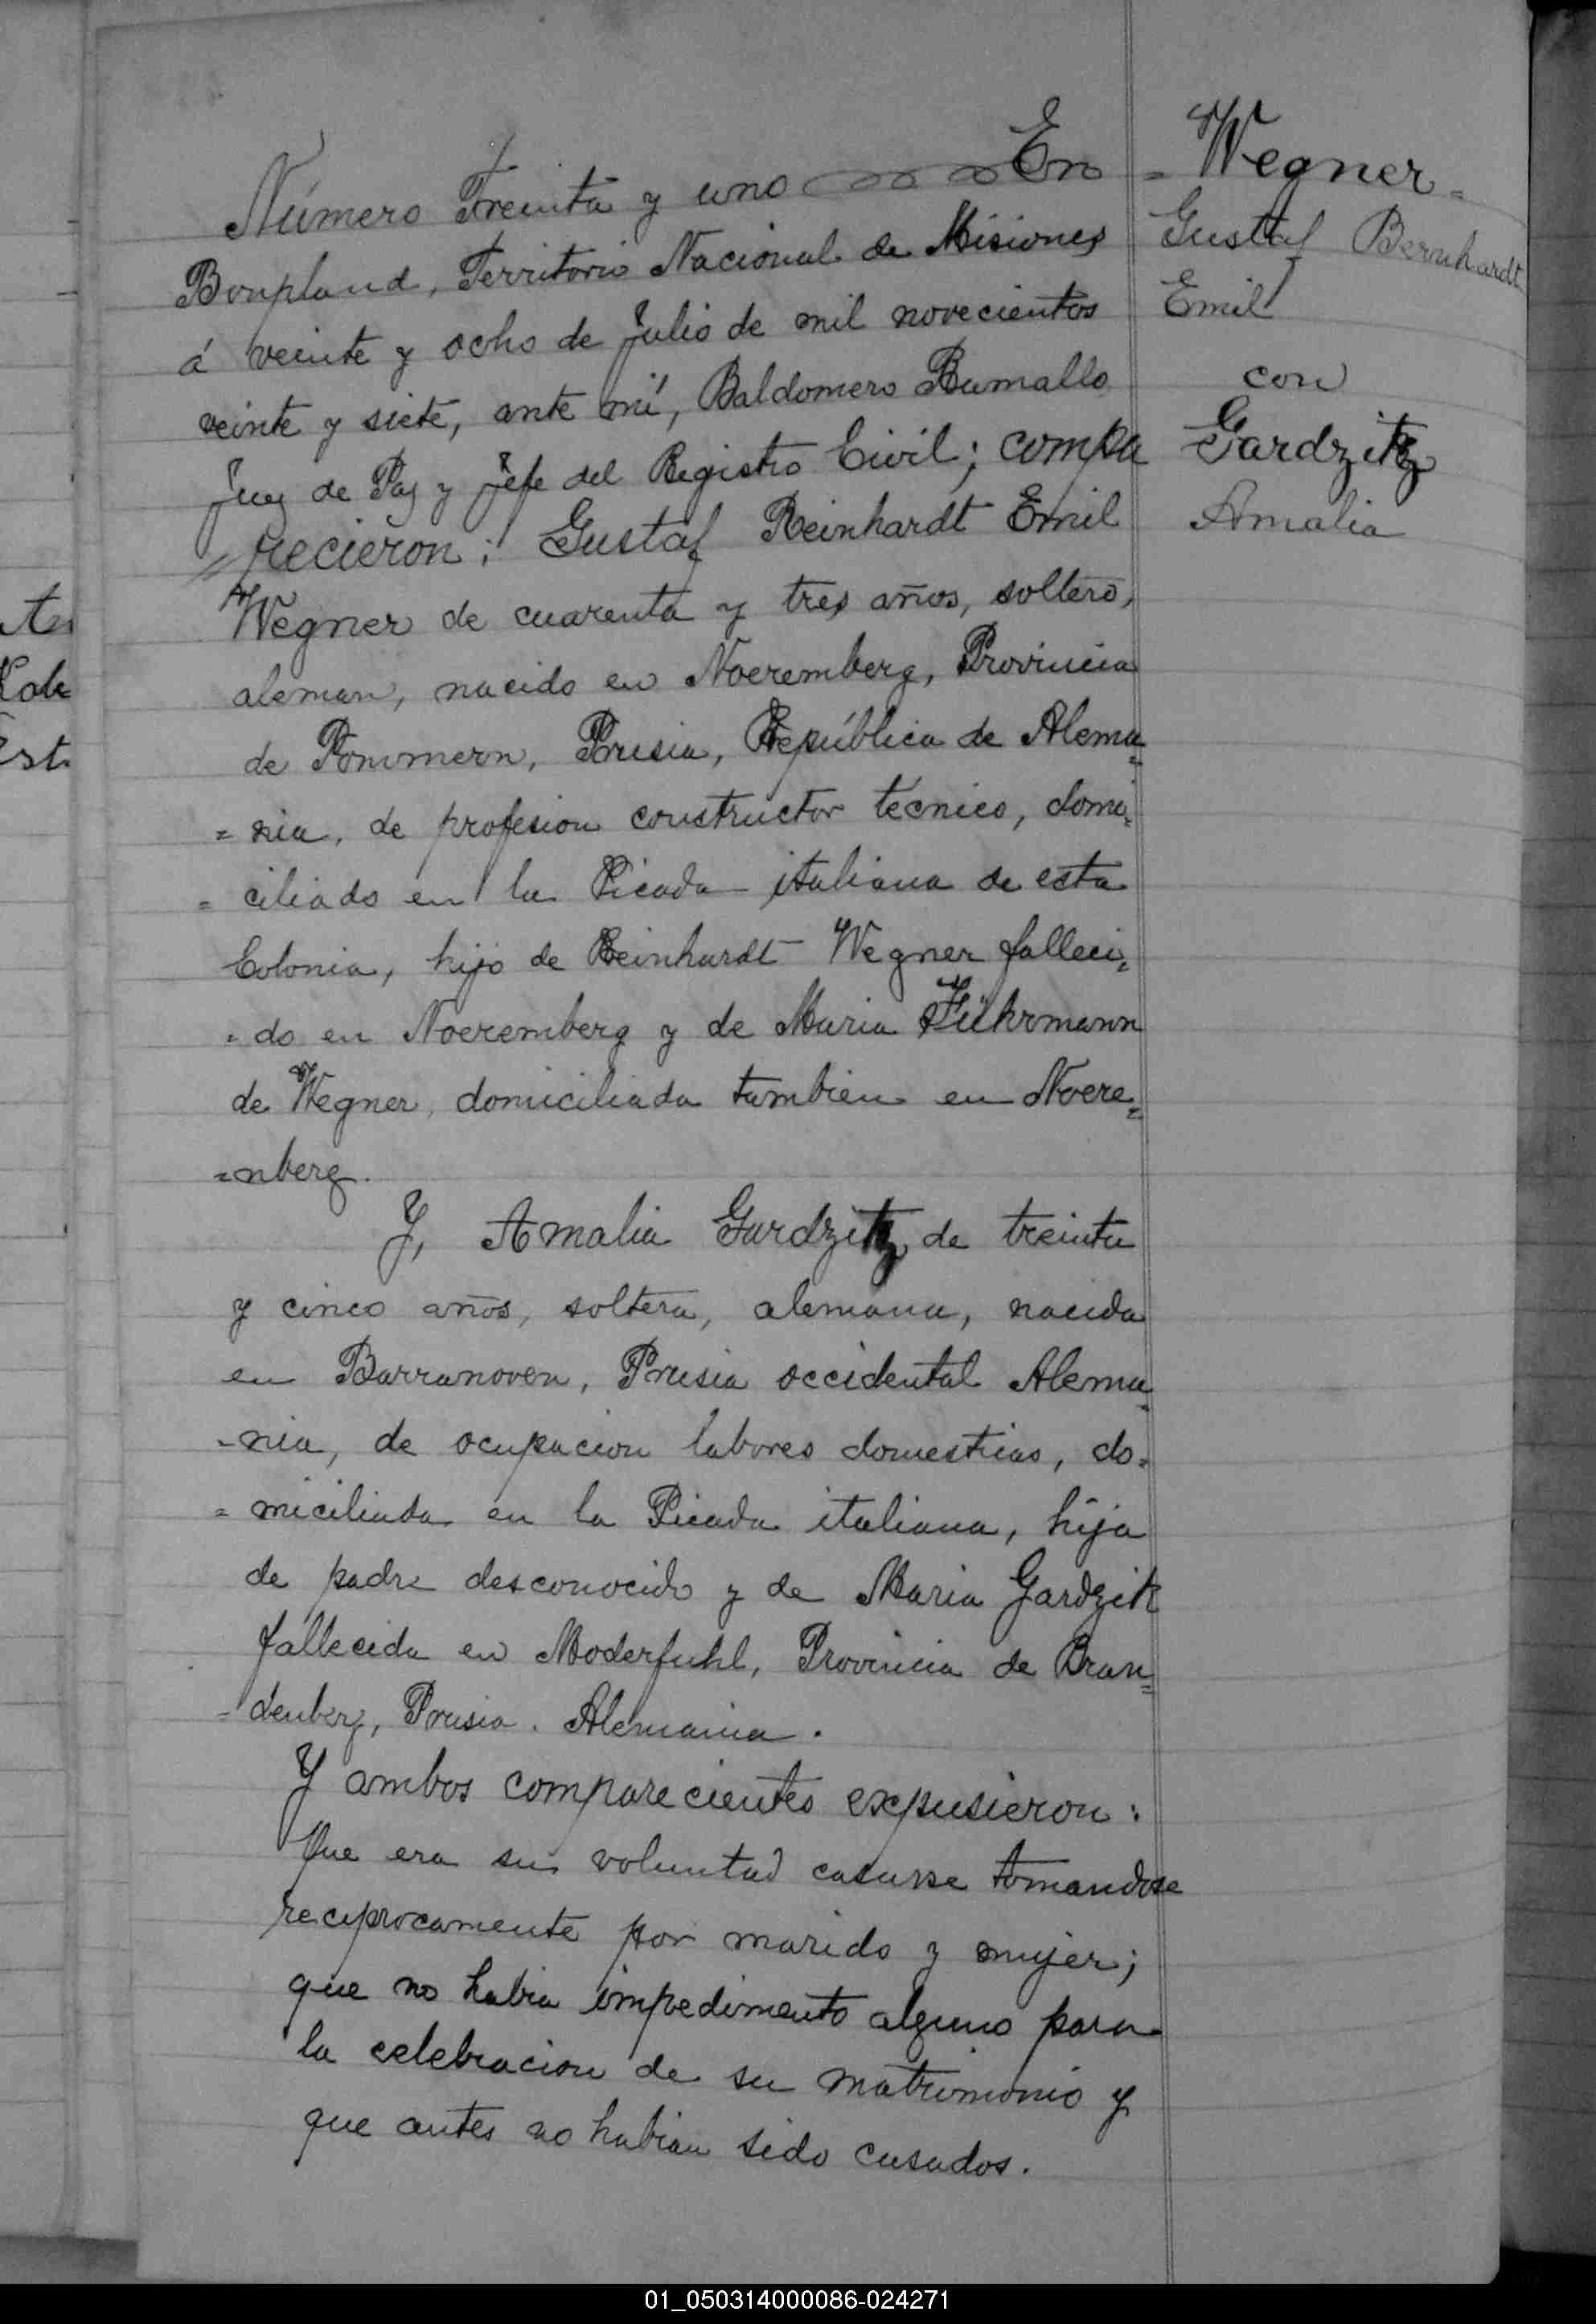 Número Treinta y uno En
Bonpland, Territorio Nacional de Misiones
á veinte y ocho de Julio de mil novecientos
veinte y siete, ante mí, Baldomero Rumallo
Juez de Paz y Jefe del Registro Civil; compa
recieron: Gustaf Reinhardt Emil
Wegner de cuarenta y tres años, soltero,
aleman, nacido en Noeremberg, Provincia
de Pommern, Prusia, República de Alema=
=nia, de profesion constructor técnico, domi=
=ciliado en la Picada italiana de esta
Colonia, hijo de Reinhardt Wegner falleci=
=do en Noeremberg y de Maria Führmann
de Wegner, domiciliada tambien en Noere=
=nberg.
Y, Amalia Gardzitz, de treinta
y cinco años, soltera, alemana, nacida
en Barranoven, Prusia occidental Alema=
=nia, de ocupacion labores domesticas, do=
=miciliada en la Picada italiana, hija
de padre desconocido y de Maria Gardzik
fallecida en Moderfuhl, Provincia de Bran=
=denberg, Prusia. Alemania.
Y ambos comparecientes expusieron:
Que era su voluntad casarse tomandose
reciprocamente por marido y mujer;
que no habia impedimento alguno para
la celebracion de su matrimonio y
que antes no habian sido casados.
= Wegner =
Gustaf Bernhardt
Emil
con
Gardzitz
Amalia
te
Kok
Est.
01_050314000086-024271